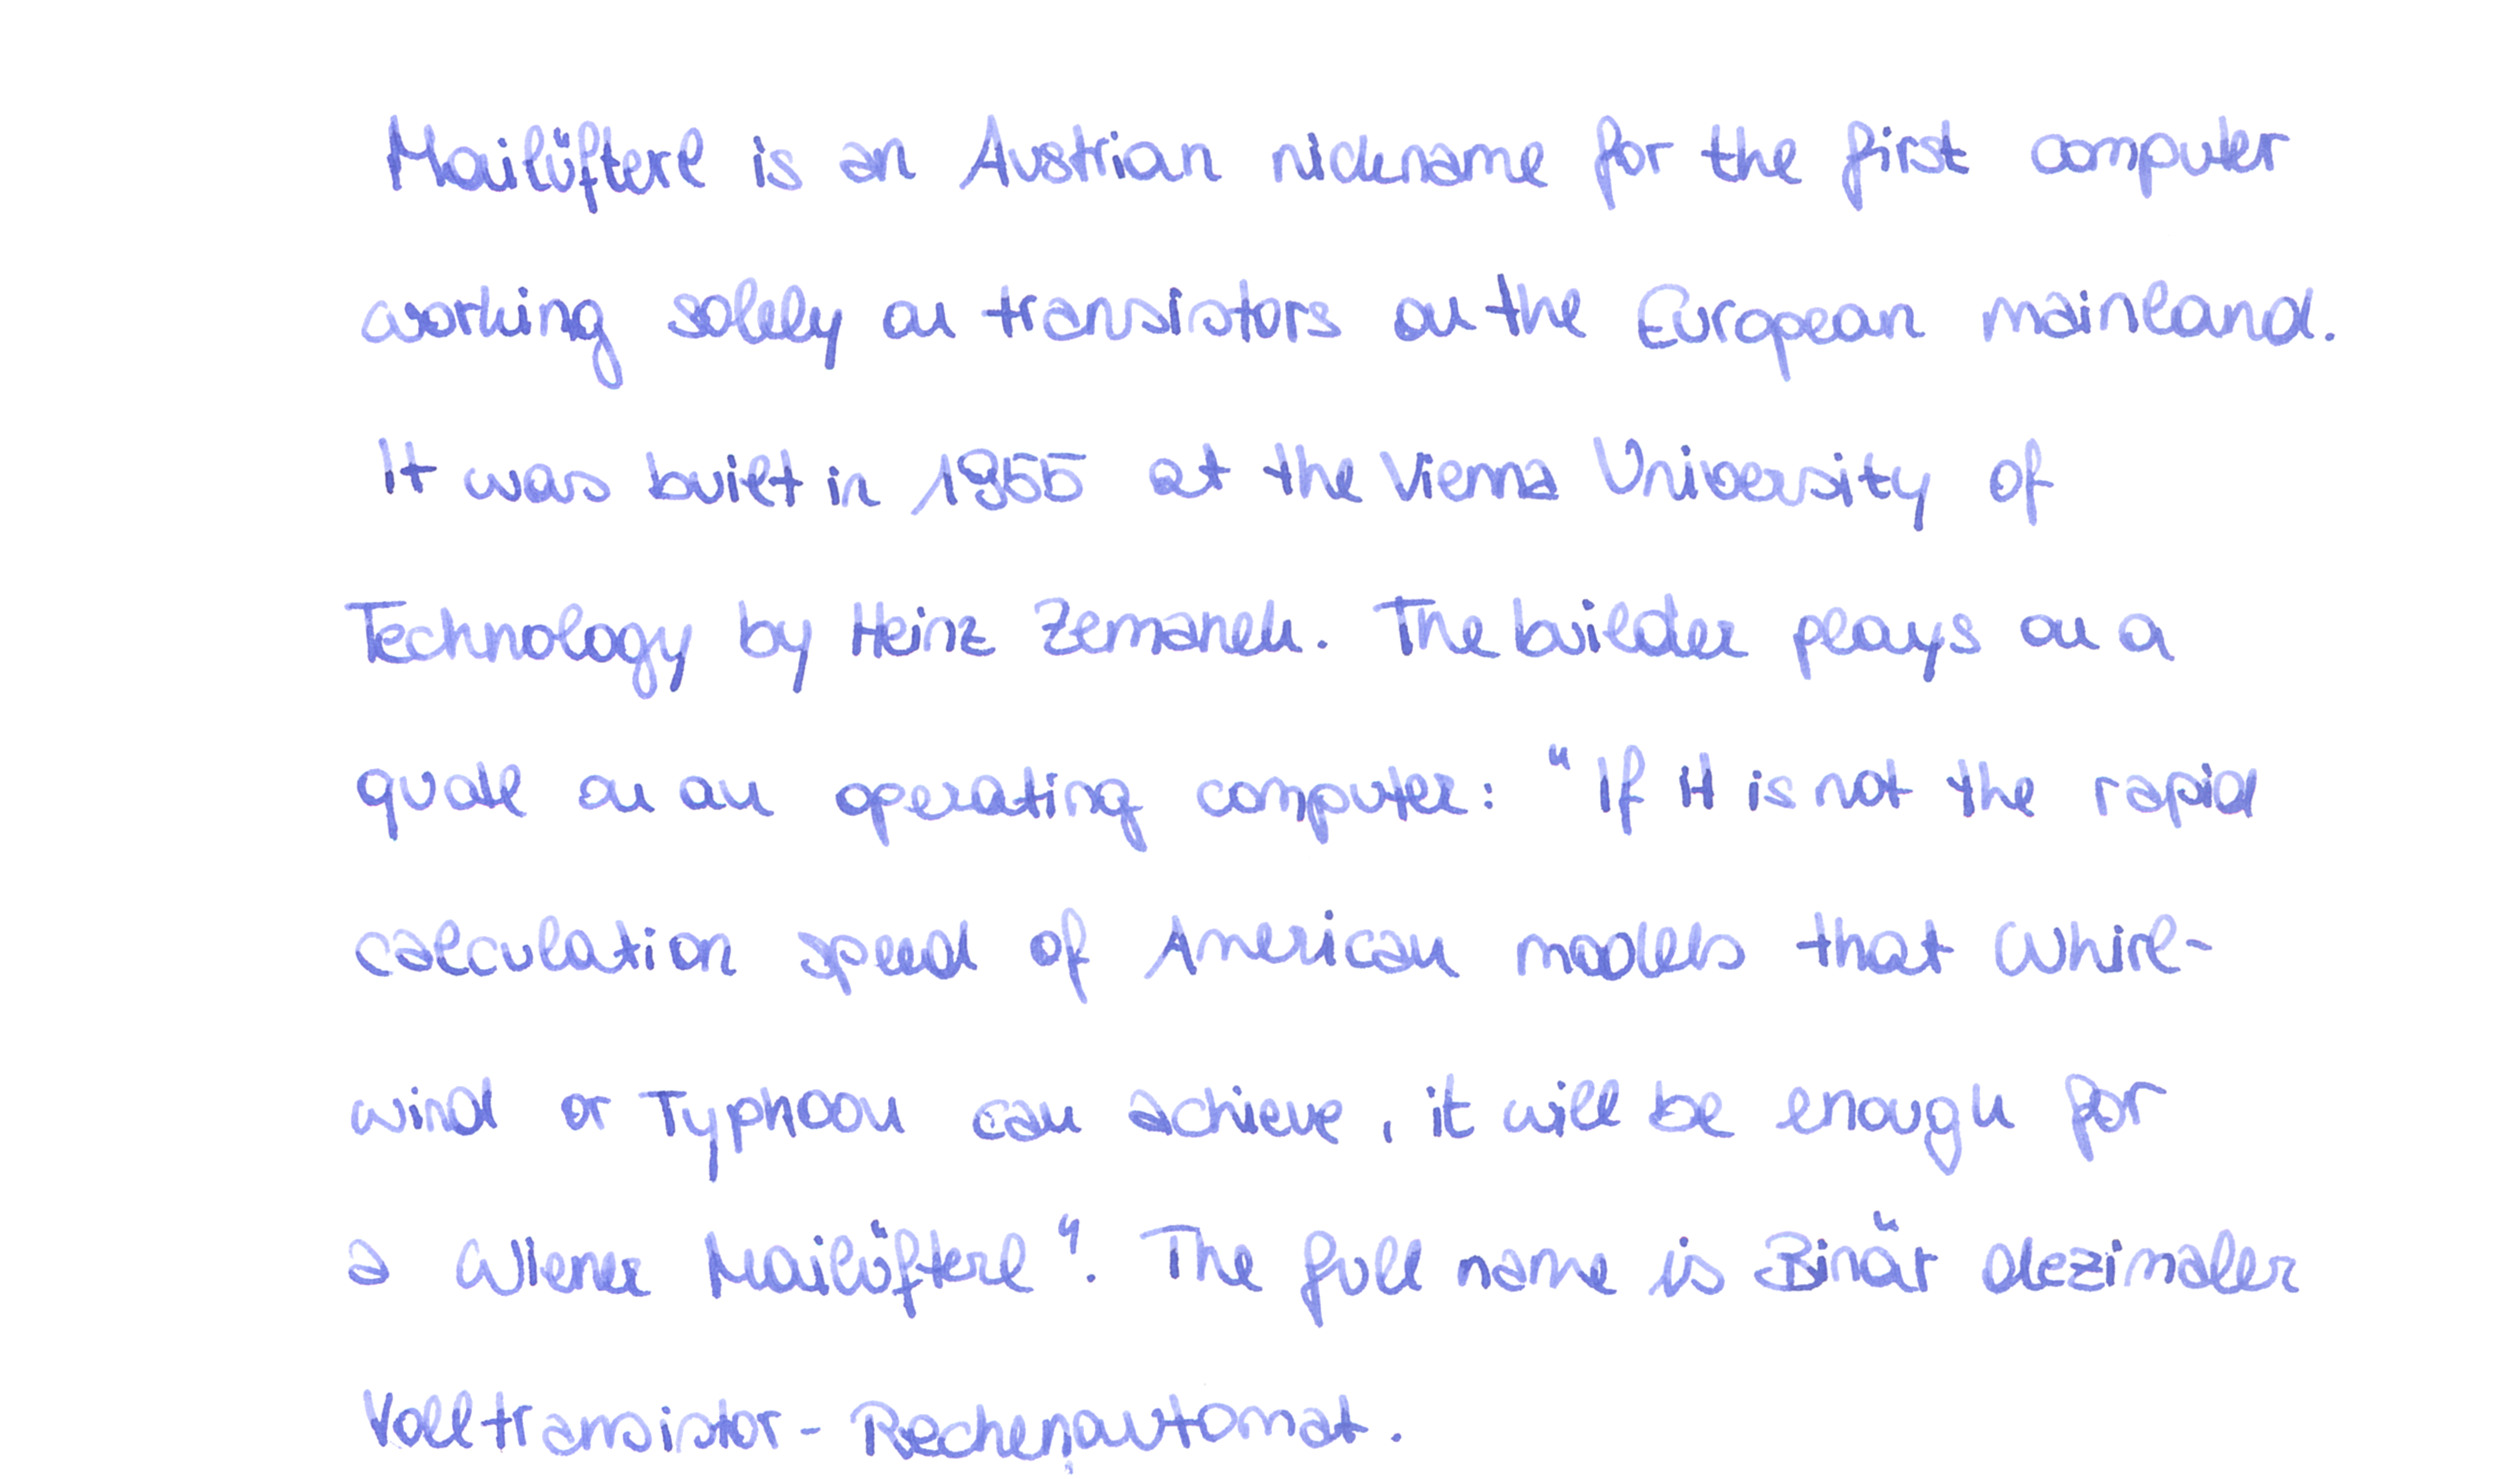 Mailüfterl is an Austrian nickname for the first computer
working solely on transistors on the European mainland.
It was built in 1955 at the Vienna University of
Technology by Heinz Zemanek. The builder plays on a
quote on an operating computer: "If it is not the rapid
calculation speed of American models that Whirl-
wind or Typhoon can achieve, it will be enough for
a Wiener Mailüfterl". The full name is Binär dezimaler
Volltransistor-Rechenautomat.